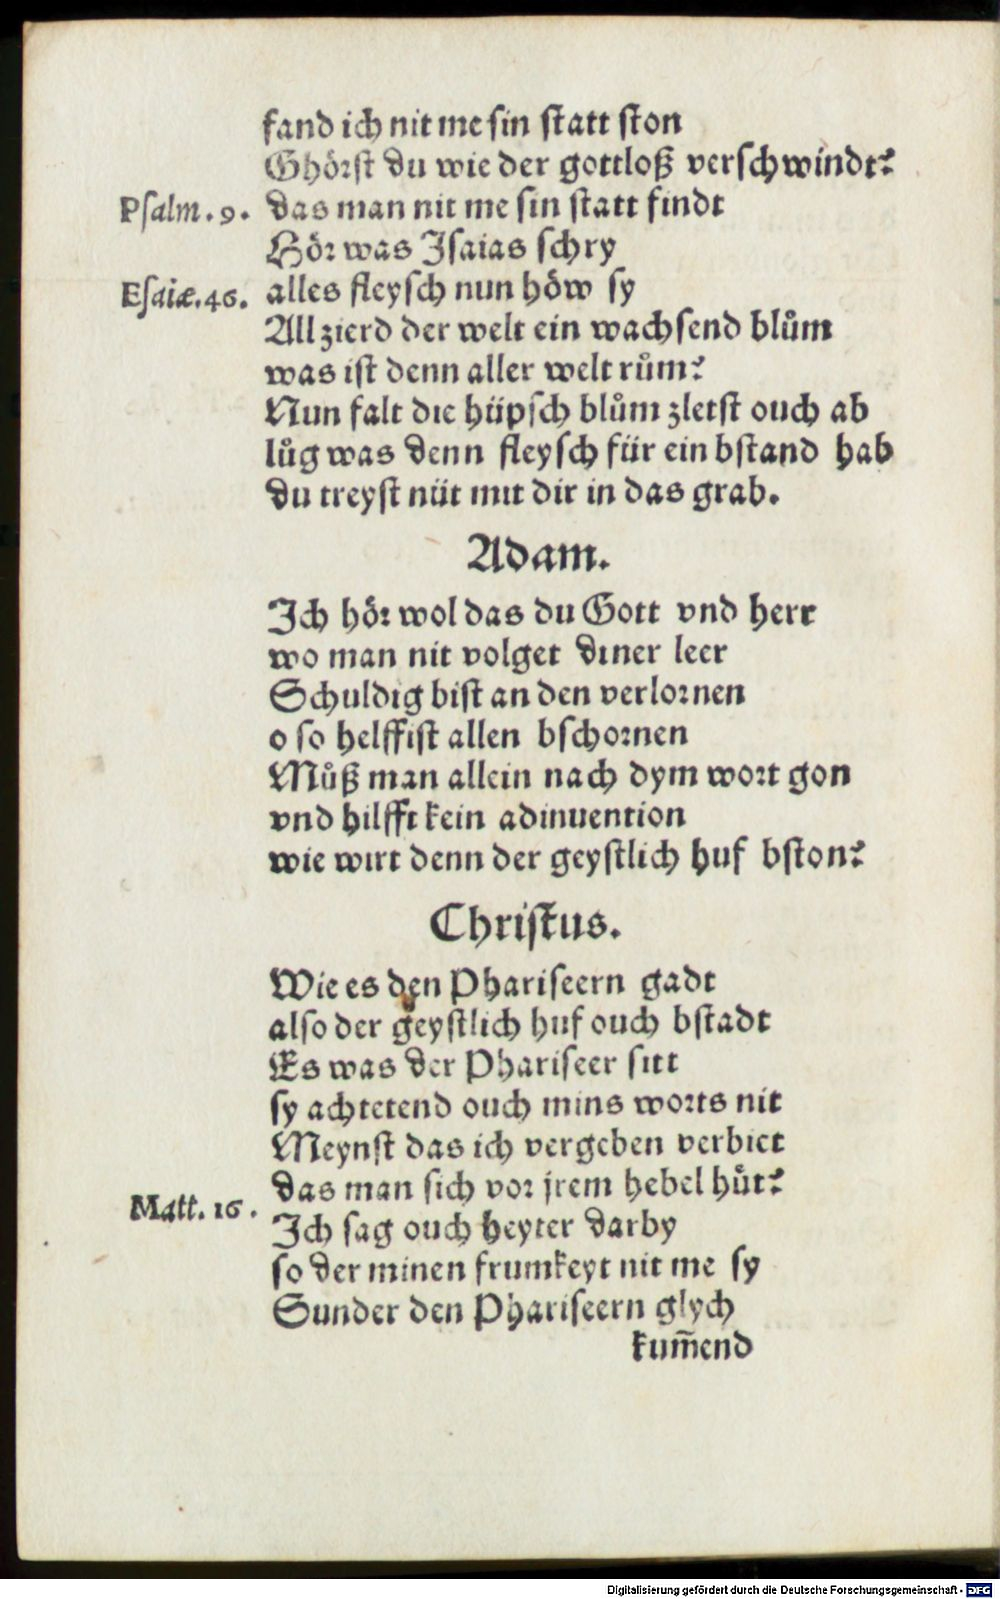 fand ich nit me sin statt ston
Ghörst du wie der gottloß verschwindt?
Psalm. 9. das man nit me sin statt findt
Hör was Isaias schry
Esaiæ. 46. alles fleysch nun höw sy
All zierd der welt ein wachsend blům
was ist denn aller welt rům?
Nun falt die hüpsch blům zletst ouch ab
lůg was denn fleysch für ein bstand hab
du treyst nüt mit dir in das grab.
Adam.
Ich hör wol das du Gott vnd herr
wo man nit volget diner leer
Schuldig bist an den verlornen
o so helffist allen bschornen
Můß man allein nach dym wort gon
vnd hilfft kein adinuention
wie wirt denn der geystlich huf bston?
Christus.
Wie es den Phariseern gadt
also der geystlich huf ouch bstadt
Es was der Phariseer sitt
sy achtetend ouch mins worts nit
Meynst das ich vergeben verbiet
das man sich vor jrem hebel hüt?
Matt. 16. Ich sag ouch heyter darby
so der minen frumkeyt nit me sy
Sunder den Phariseern glych
kum̄end
Digitalisierung gefördert durch die Deutsche Forschungsgemeinschaft - DFG